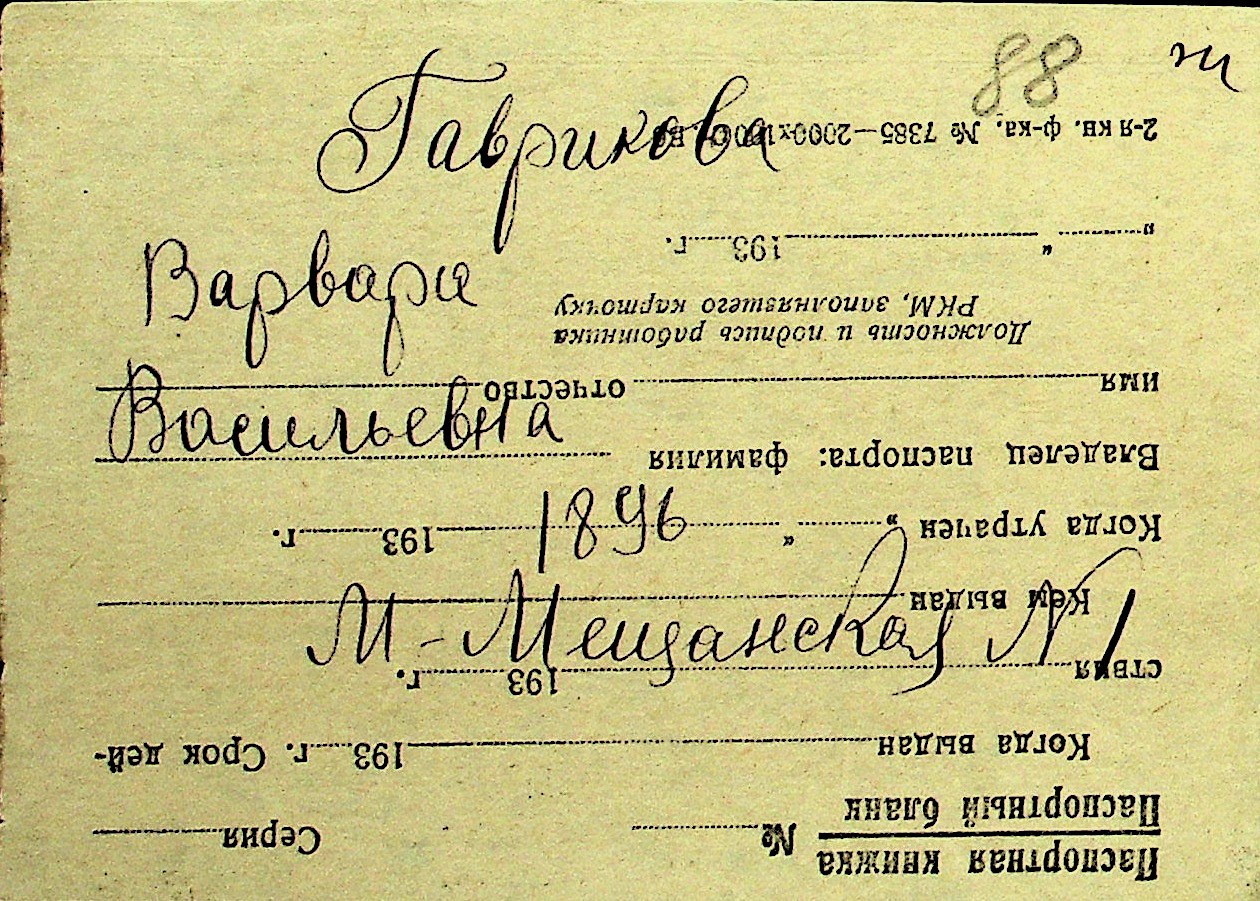 88 ж
Гаврикова
Варвара
Васильевна
1896
М-Мещанская №1
Паспортная книжка
Паспортный бланк № Серия
Когда выдан 193 г. Срок дей-
ствия 193 г.
Кем выдан
Когда утрачен „ “ 193 г.
Владелец паспорта: фамилия
имя отчество
Должность и подпись работника
РКМ, заполнявшего карточку
„ “ 193 г.
2-я кн. ф-ка. № 7385—2000х1000.